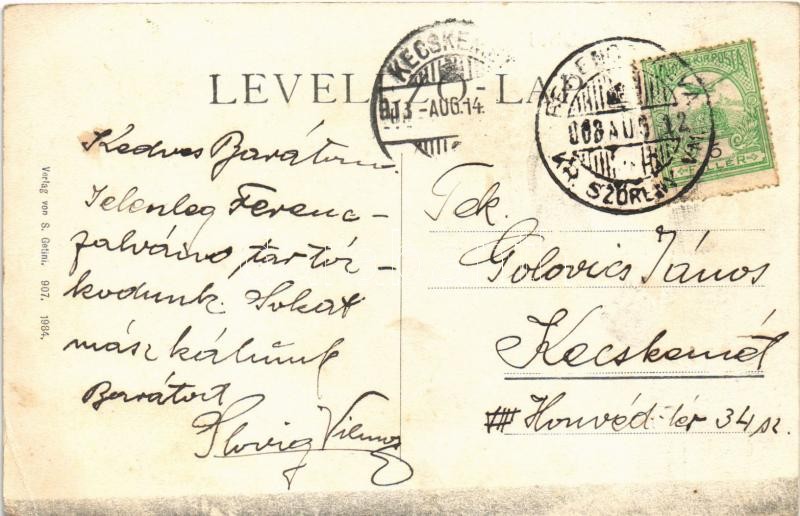 LEVELEZŐ-LAP
KECSKEMÉT
913 -AUG.14
908 AUG 12
KR. SZÖRÉNY VM
MAGY. KIR. POSTA
FILLÉR
Kedves Barátom
Jelenleg Ferenc-
falván tartóz-
kodunk. Sokat
mászkálunk
Barátod
Vilmos
Tek.
Golovics János
Kecskemét
III Honvéd-tér 34 sz.
Verlag von S. Getini. 907. 1984.